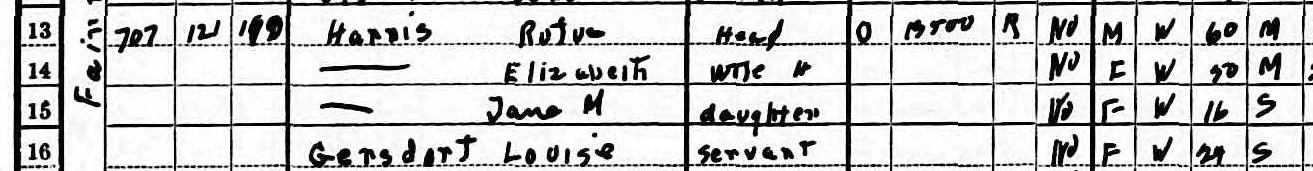 13 707 121 199 Harris Rufus Head O 1500 R No M W 60 M
14 — Elizabeth Wife H No F W 50 M
15 — Jane M daughter No F W 16 S
16 Gersdorf Louise servant No F W 24 S